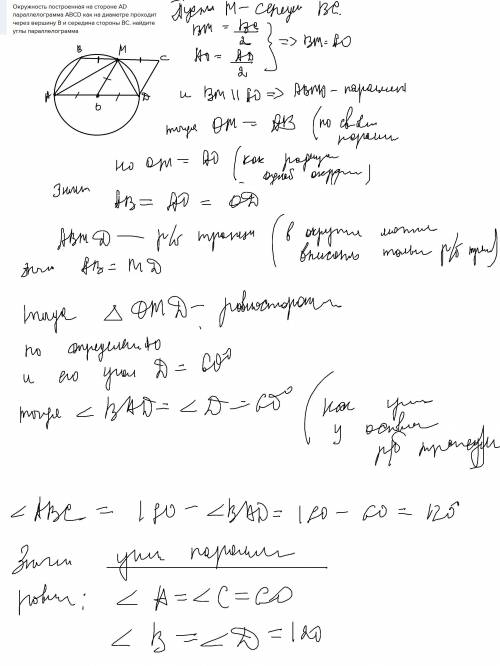 Окружность построенная на стороне AD
параллелограмма ABCD как на диаметре проходит
через вершину B и середине стороны BC. найдите
углы параллелограмма
Пусть M - середи BC.
BM = BC/2
AO = AD/2
=> BM = AO
B M C
A O D
и BM || AO => ABMO - параллел
тогда OM = AB (по св-ву
паралл
но OM = AO (как радиусы
одной окружн)
Значит
AB = AO = OD
ABMD — р/б трапец (в окружн можно
вписать только р/б трап)
значит AB = MD
тогда △ OMD - равносторон
по определению
и его угол D = 60°
тогда ∠ BAD = ∠ D = 60° (как углы
у основан
р/б трапеции
∠ ABC = 180 - ∠BAD = 180 - 60 = 120
Значит углы паралл
равны: ∠ A = ∠ C = 60
∠ B = ∠ D = 120